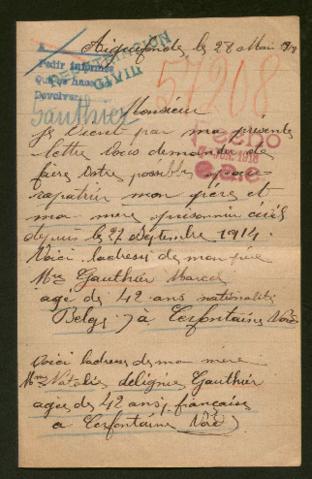 Aiguefonde le 28 Mai
REPATRIACION
CIVIL
Pedir informes
Devolver
57208
Gauthier
Monsieur
je viens par ma présente
lettre vous demander de
faire votre possible pour
rapatrier mon père et
ma mère prisonnier civils
depuis le 27 septembre 1914.
Voici ladresse de mon père
Mr Gauthier Marcel
age de 42 ans nationalité
Belge à Cerfontaine Nord
voici ladresse de ma mere
Mme Natalie delignie Gauthier
agée de 42 ans française
a Cerfontaine Nord